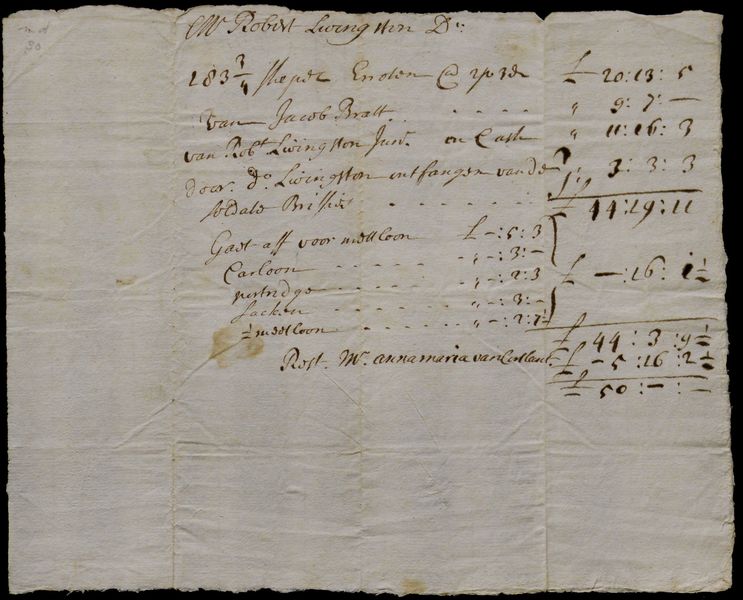 Mr Robert Livingston Dr
183 3/4 skepel Erreten @ 2p 3d £ 20:13:5
van Jacob Bratt . . . . . „ 9:7:—
van Robt Livingston Junr. en Cash „ 11:16:3
door do Livingston ontfangen vande „ 3:3:3
soldate . . . . . . £ 44:19:11
Gaet aff voor meelloon £ —:5:3
Carloon . . . . „ —:3:—
. . . . „ —:2:3
Sacken . . . . „ —:3:—
£ —:16:1½
½ meelloon . . . . „ —:2:7½
£ 44:3:9½
Rest. Mr. annamaria van Cortlant £ —5:16:2½
£ 50:—:—